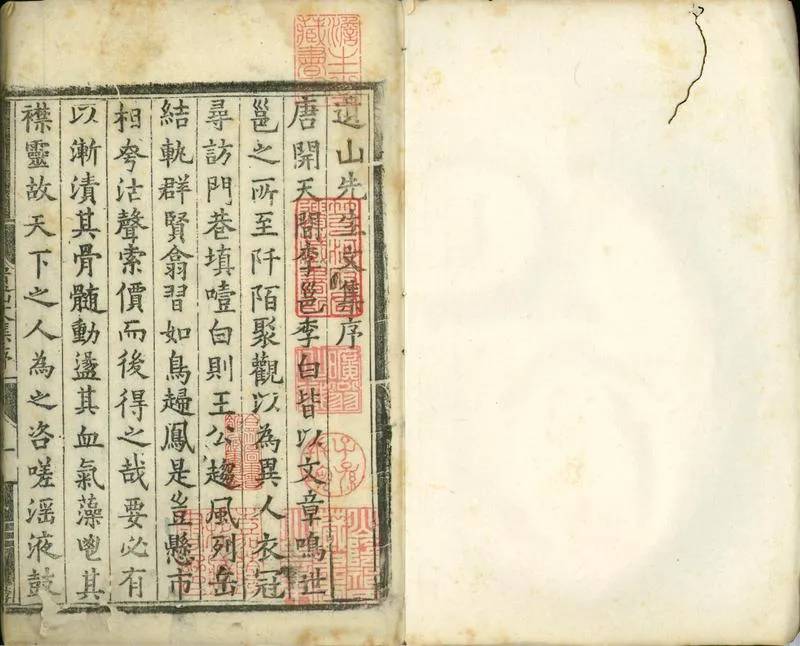 遺山先生文集序
唐開天間李邕李白皆以文章鳴世
邕之所至阡陌聚觀以為異人衣冠
尋訪門巷填噎白則王公趨風列岳
結軌群賢翕習如鳥歸鳳是豈懸市
相夸沽聲索價而後得之哉要必有
以漸漬其骨髓動盪其血氣藻鬯其
襟靈故天下之人為之咨嗟滛液鼓